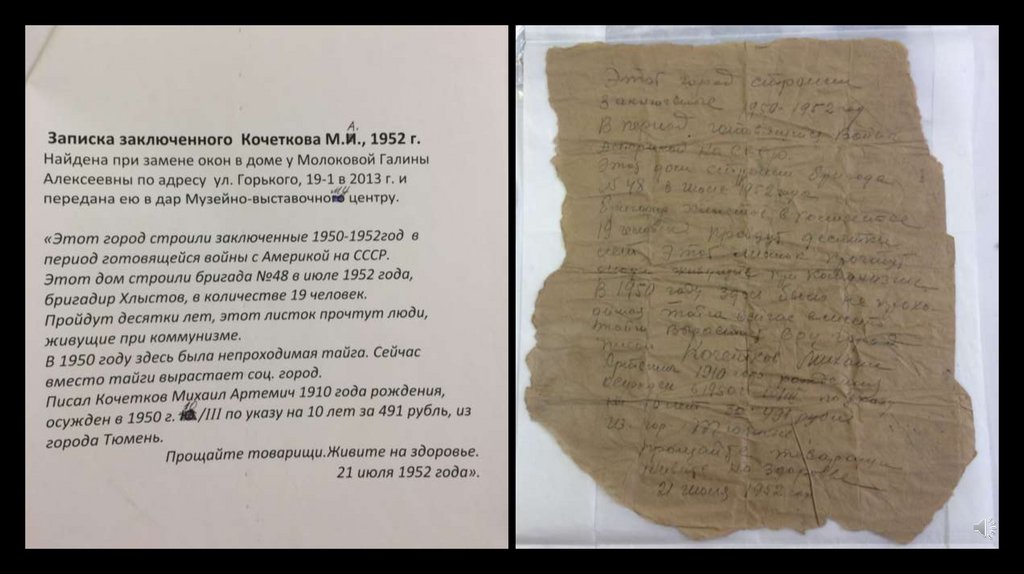 Записка заключенного Кочеткова М.А., 1952 г.
Найдена при замене окон в доме у Молоковой Галины
Алексеевны по адресу ул. Горького, 19-1 в 2013 г. и
передана ею в дар Музейно-выставочному центру.
«Этот город строили заключенные 1950-1952год в
период готовящейся войны с Америкой на СССР.
Этот дом строили бригада №48 в июле 1952 года,
бригадир Хлыстов, в количестве 19 человек.
Пройдут десятки лет, этот листок прочтут люди,
живущие при коммунизме.
В 1950 году здесь была непроходимая тайга. Сейчас
вместо тайги вырастает соц. город.
Писал Кочетков Михаил Артемич 1910 года рождения,
осужден в 1950 г. /III по указу на 10 лет за 491 рубль, из
города Тюмень.
Прощайте товарищи.Живите на здоровье.
21 июля 1952 года».
Этот город строили
заключенные 1950-1952 год
В период готовящейся войны
Америкой на СССР.
Этот дом строили бригада
№ 48 в июле 1952 года
19 человек Пройдут десятки
лет Этот листок прочтут
люди живущие при коммунизме
В 1950 году здесь была не прохо-
тайга сейчас вместо
тайги вырастает город
писал Кочетков Михаил
1910 года рождения
на 10 лет за 491 рубль
из гор Тюмень
прощайте товарищи
живите на здоровье
21 июля 1952 год